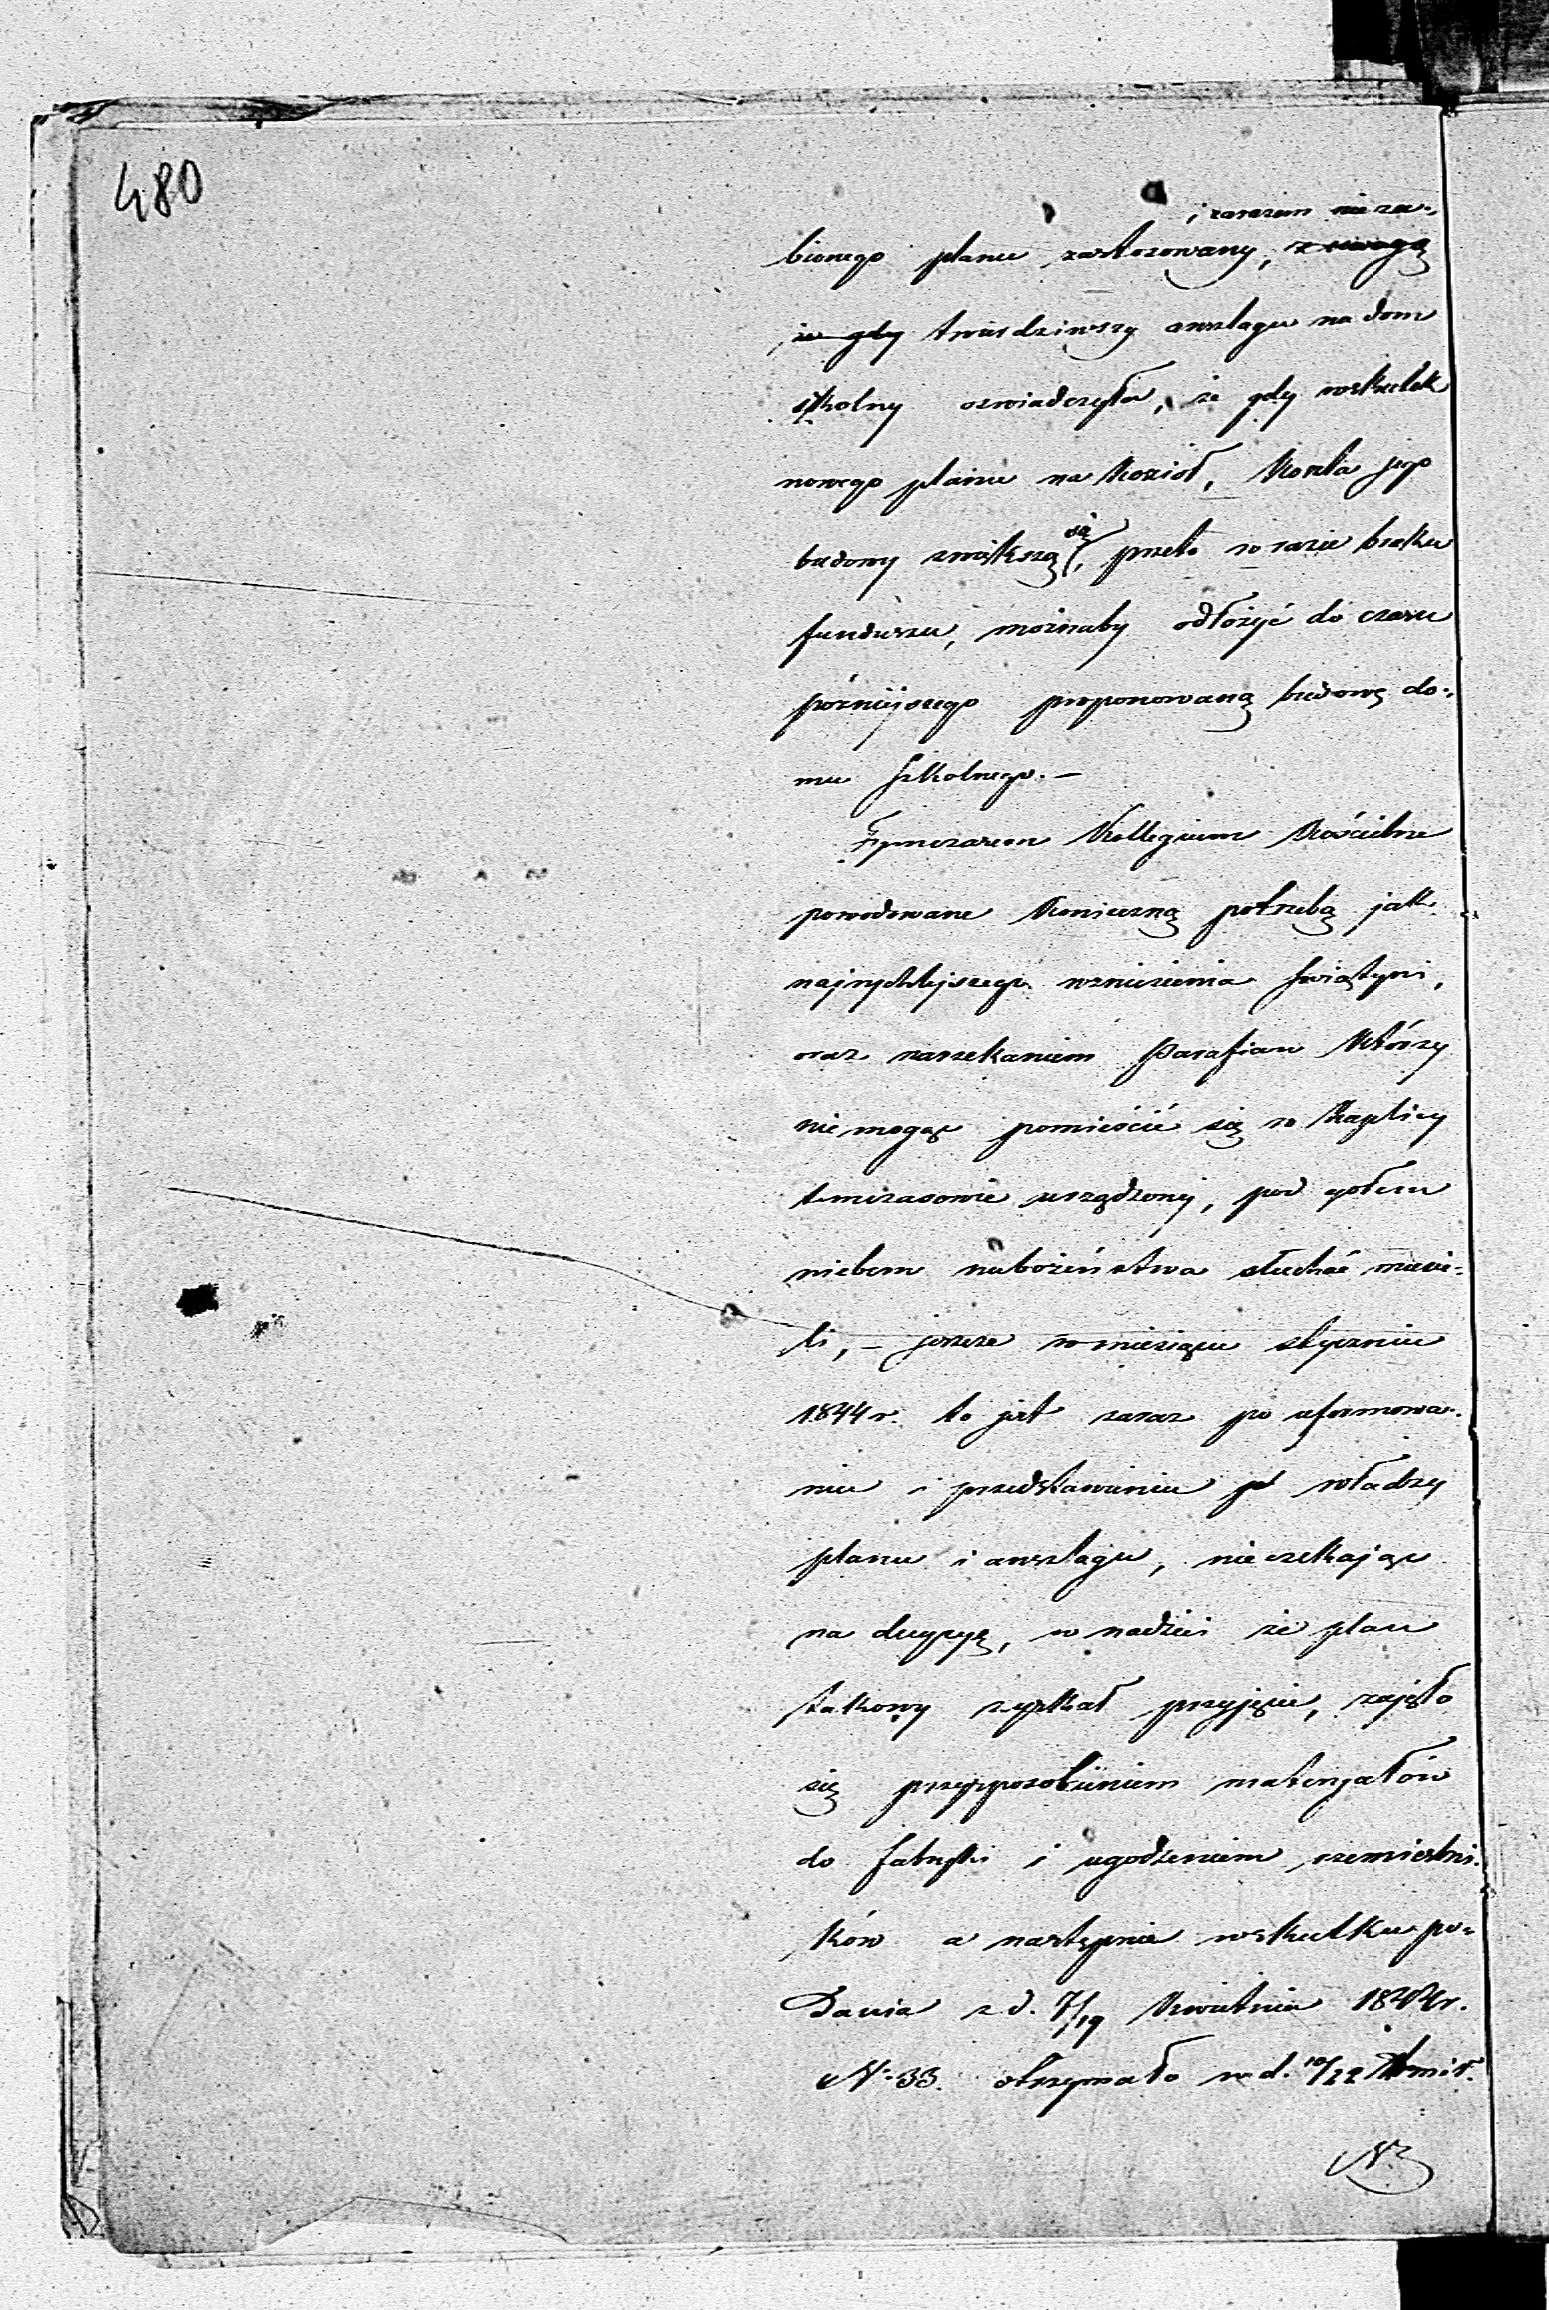 480
i zarazem nieza-
bionego planu zastosowany, z uwagą
że gdy twierdziwszy anszlagu na dom
szkolny oswiadczyła, że gdy wskutek
nowego planu na kościół, koszta jego
budowy zwiększą się, przeto w razie braku
funduszu, możnaby odłożyć do czasu
późniejszego proponowaną budowę do-
mu szkolnego. —
Tymczasem Kollegium Kościelne
powodowane konieczną potrzebą jak
najrychlejszego wzniesienia świątyni,
oraz narzekaniem Parafian którzy
nie mogąc pomieścić się w kaplicy
tymczasowie urządzonej, pod gołem
niebem nabożeństwa słuchać musie-
li, — jeszcze w miesiącu styczniu
1844 r. to jest zaraz po uformowa-
niu i przedstawieniu władzy
planu i anszlagu, nie czekając
na decyzyę, w nadziei że plan
takowy zyskał przyjęcie, zajęło
się przysposobieniem materyałów
do fabryki i ugodzeniem rzemieślni-
ków a następnie wskutku po-
dania z d. 7/19 Kwietnia 1844 r.
N. 33. otrzymało w d. 10/22 t. m. i r.
N.